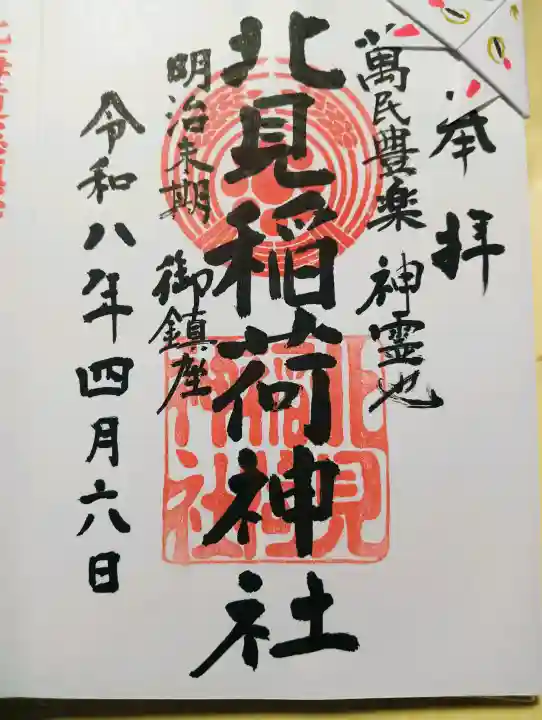 奉拝
萬民豊楽 神霊也
北見稲荷神社
明治末期 御鎮座
令和八年四月六日
北見
稲荷
神社